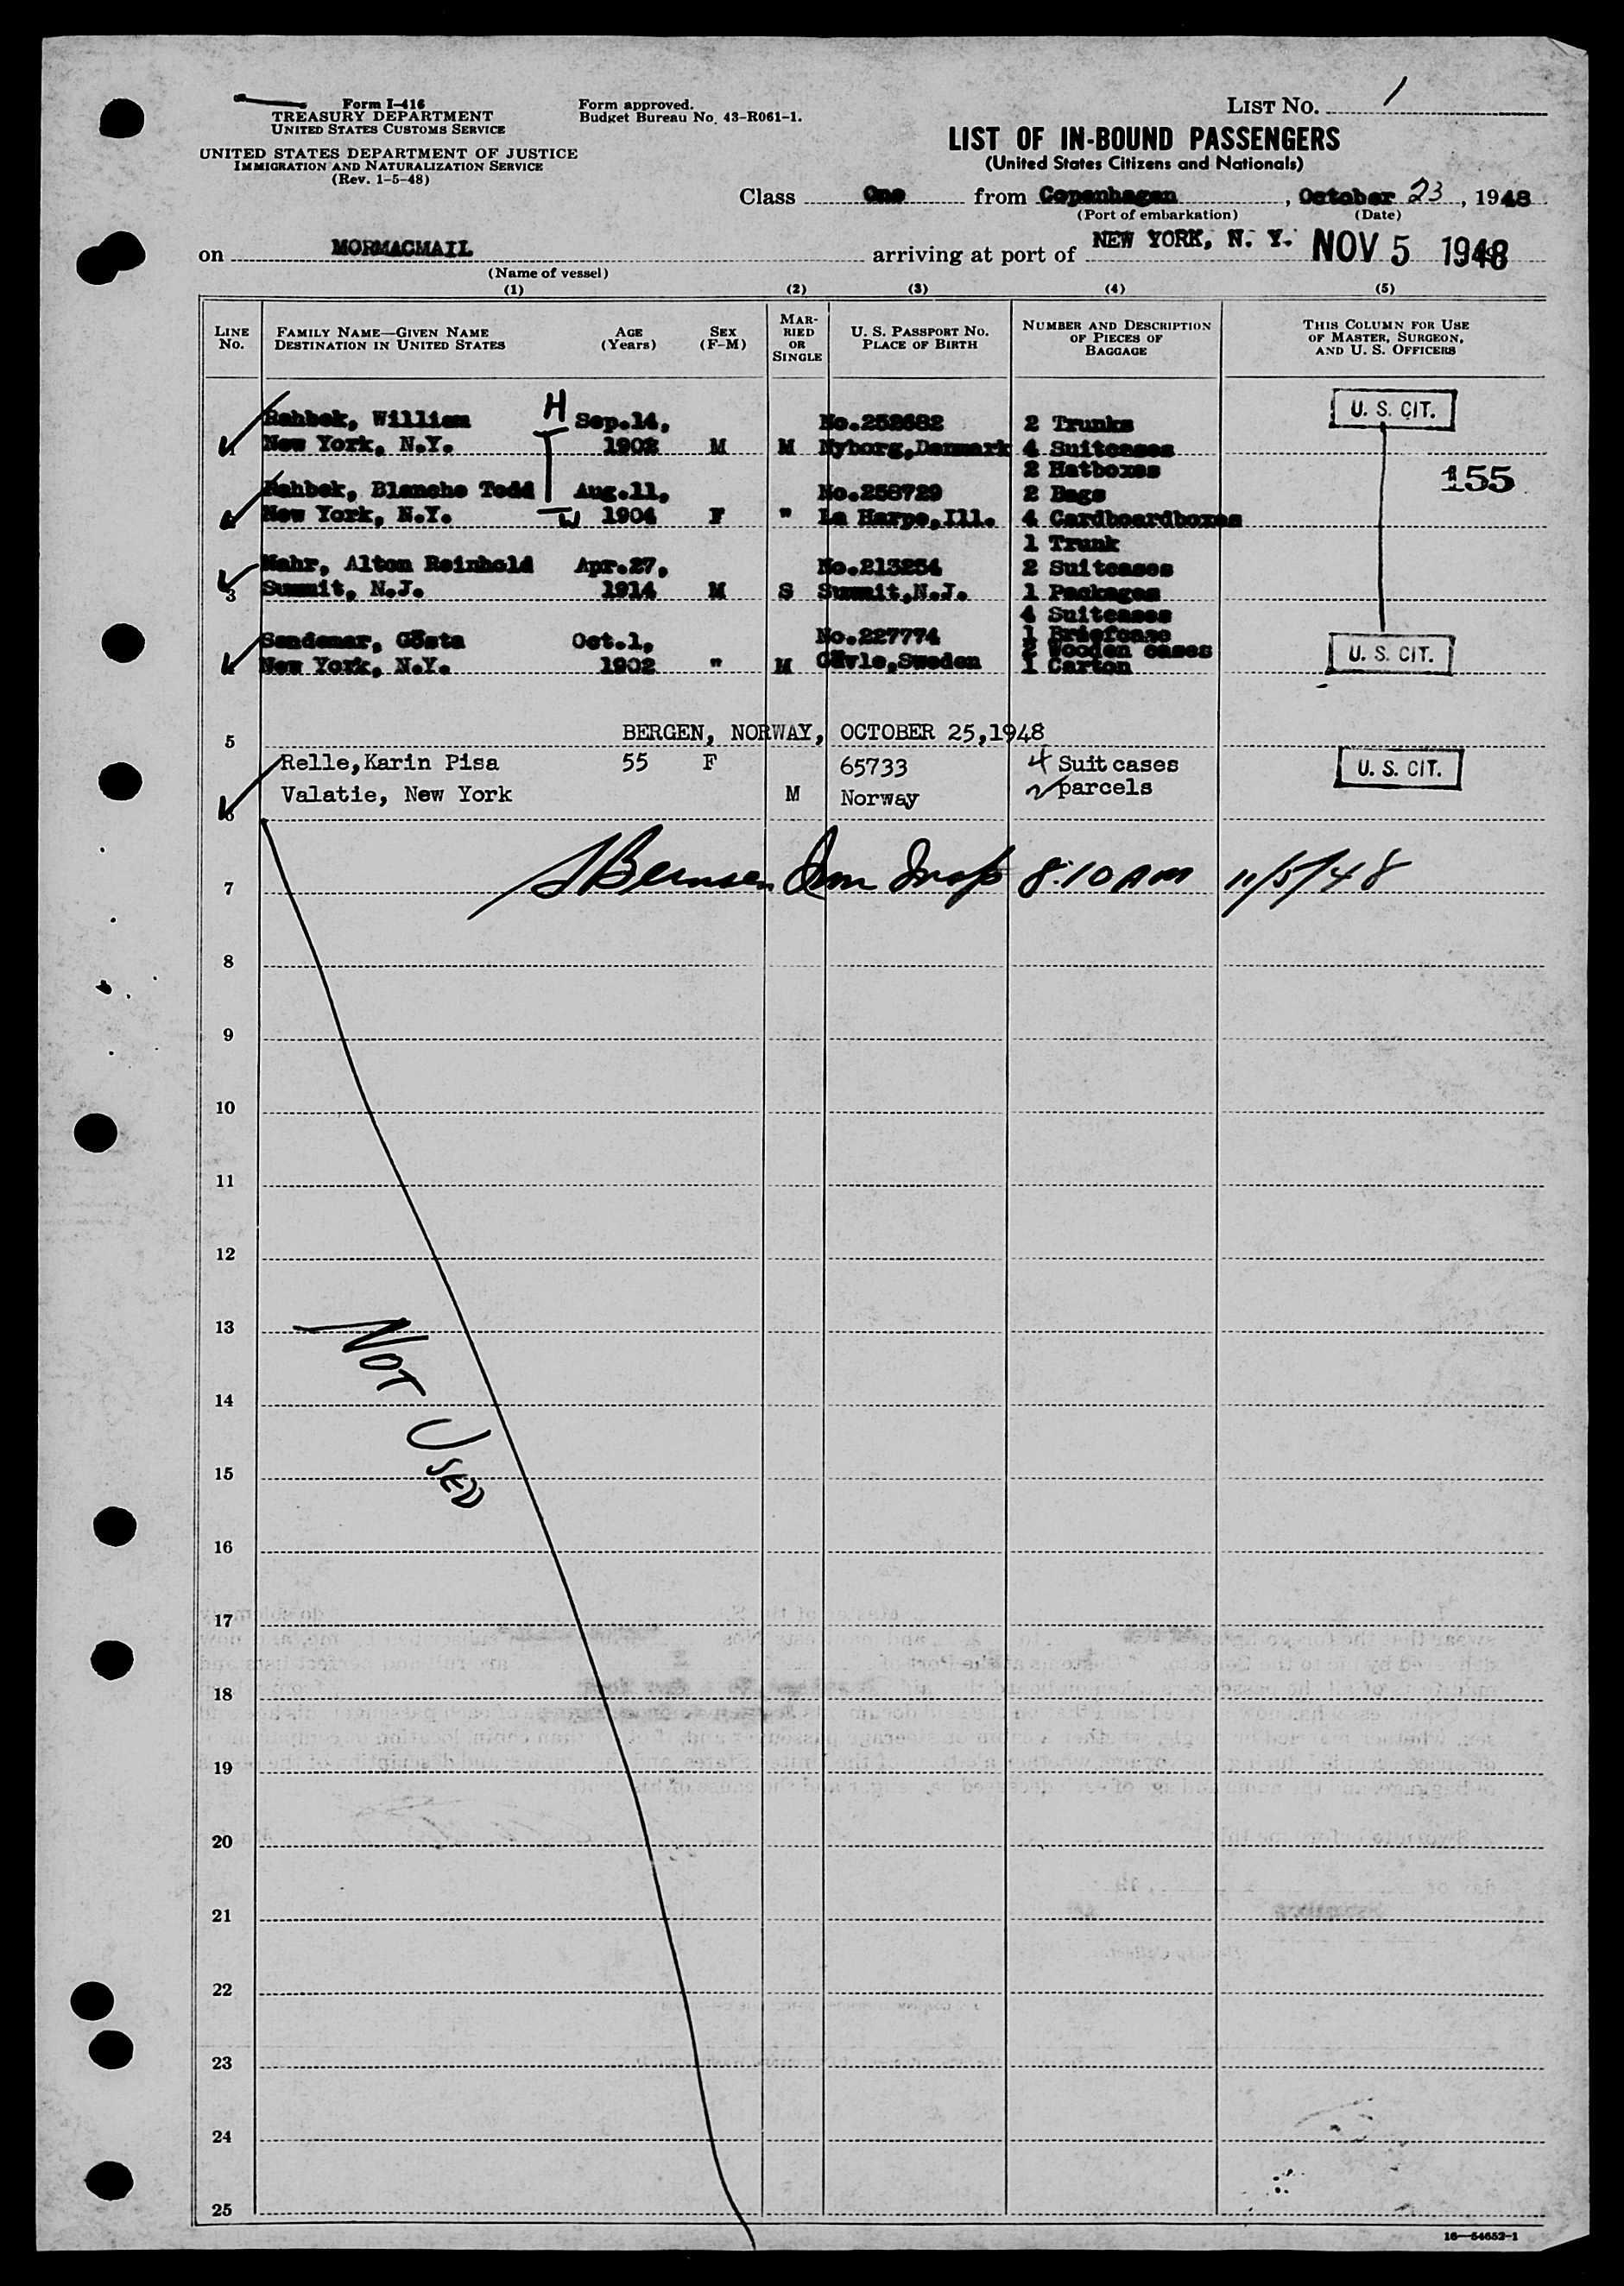 Form I-416
TREASURY DEPARTMENT
UNITED STATES CUSTOMS SERVICE
UNITED STATES DEPARTMENT OF JUSTICE
IMMIGRATION AND NATURALIZATION SERVICE
(Rev. 1-5-48)
Form approved.
Budget Bureau No. 43-R061-1.
LIST NO. 1
LIST OF IN-BOUND PASSENGERS
(United States Citizens and Nationals)
Class One from Copenhagen, October 23, 1948
(Port of embarkation) (Date)
on MORMACMAIL arriving at port of NEW YORK, N. Y. NOV 5 1948
(Name of vessel)
(1) (2) (3) (4) (5)
LINE NO.
FAMILY NAME—GIVEN NAME
DESTINATION IN UNITED STATES
AGE (Years)
SEX (F-M)
MARRIED OR SINGLE
U. S. PASSPORT NO.
PLACE OF BIRTH
NUMBER AND DESCRIPTION OF PIECES OF BAGGAGE
THIS COLUMN FOR USE OF MASTER, SURGEON, AND U. S. OFFICERS
Rahbek, William H Sep.14, No.252682 2 Trunks U. S. CIT.
New York, N.Y. 1902 M M Nyborg,Denmark 4 Suitcases
2 Hatboxes 155
Rahbek, Blanche Todd Aug.11, No.258729 2 Bags
New York, N.Y. W 1904 F " La Harpe,Ill. 4 Cardboardboxes
1 Trunk
Mahr, Alton Reinhold Apr.27, No.213254 2 Suitcases
3 Summit, N.J. 1914 M S Summit,N.J. 1 Packages
4 Suitcases
Sandemar, Gösta Oct.1, No.227774 1 Briefcase
2 Wooden cases
New York, N.Y. 1902 " M Gävle,Sweden 1 Carton U. S. CIT.
5 BERGEN, NORWAY, OCTOBER 25,1948
Relle,Karin Pisa 55 F 65733 4 Suitcases U. S. CIT.
6 Valatie, New York M Norway 2 parcels
7 Imm Insp 8:10 AM 11/5/48
8
9
10
11
12
13
NOT USED
14
15
16
17
18
19
20
21
22
23
24
25
16—54652-1